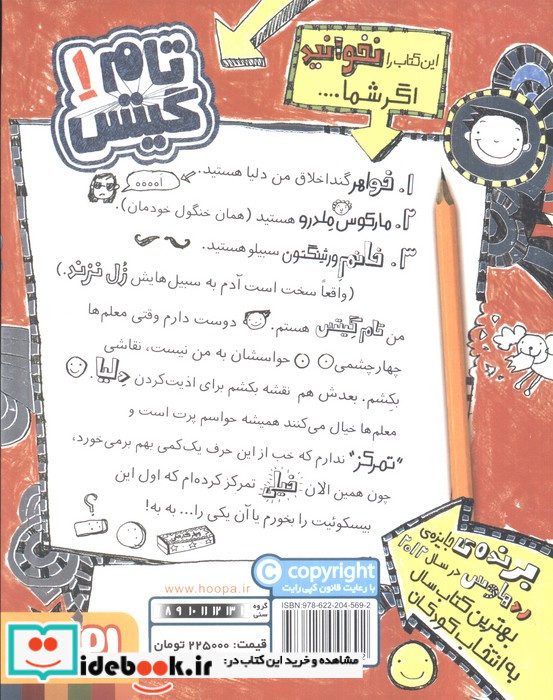 تام
گیتس!
این کتاب را نخوانید
اگر شما....
۱. خواهر گنداخلاق من دلیا هستید.
۲. مارکوس ملدرو هستید (همان خنگول خودمان).
۳. خانم ورثینگتون سبیلو هستید.
(واقعاً سخت است آدم به سبیل‌هایش زُل نزند.)
من تام گیتس هستم. دوست دارم وقتی معلم‌ها
چهارچشمی حواسشان به من نیست، نقاشی
بکِشم. بعدش هم نقشه بکشم برای اذیت‌کردن دِلیا.
معلم‌ها خیال می‌کنند همیشه حواسم پرت است و
"تمرکز" ندارم که خب از این حرف یک‌کمی بهم برمی‌خورد،
چون همین الان خیلی تمرکز کرده‌ام که اول این
بیسکوئیت را بخورم یا آن یکی را... به به!
برنده‌ی جایزه‌ی
در سال ۲۰۱۲
بهترین کتاب سال
به انتخاب کودکان
© copyright
با رعایت قانون کپی رایت
www.hoopa.ir
گروه سنی
۸ ۹ ۱۰ ۱۱ ۱۲ ۱۳
ISBN: 978-622-204-569-2
قیمت: ۲۲۵۰۰۰ تومان
مشاهده و خرید این کتاب در:
idebook.ir